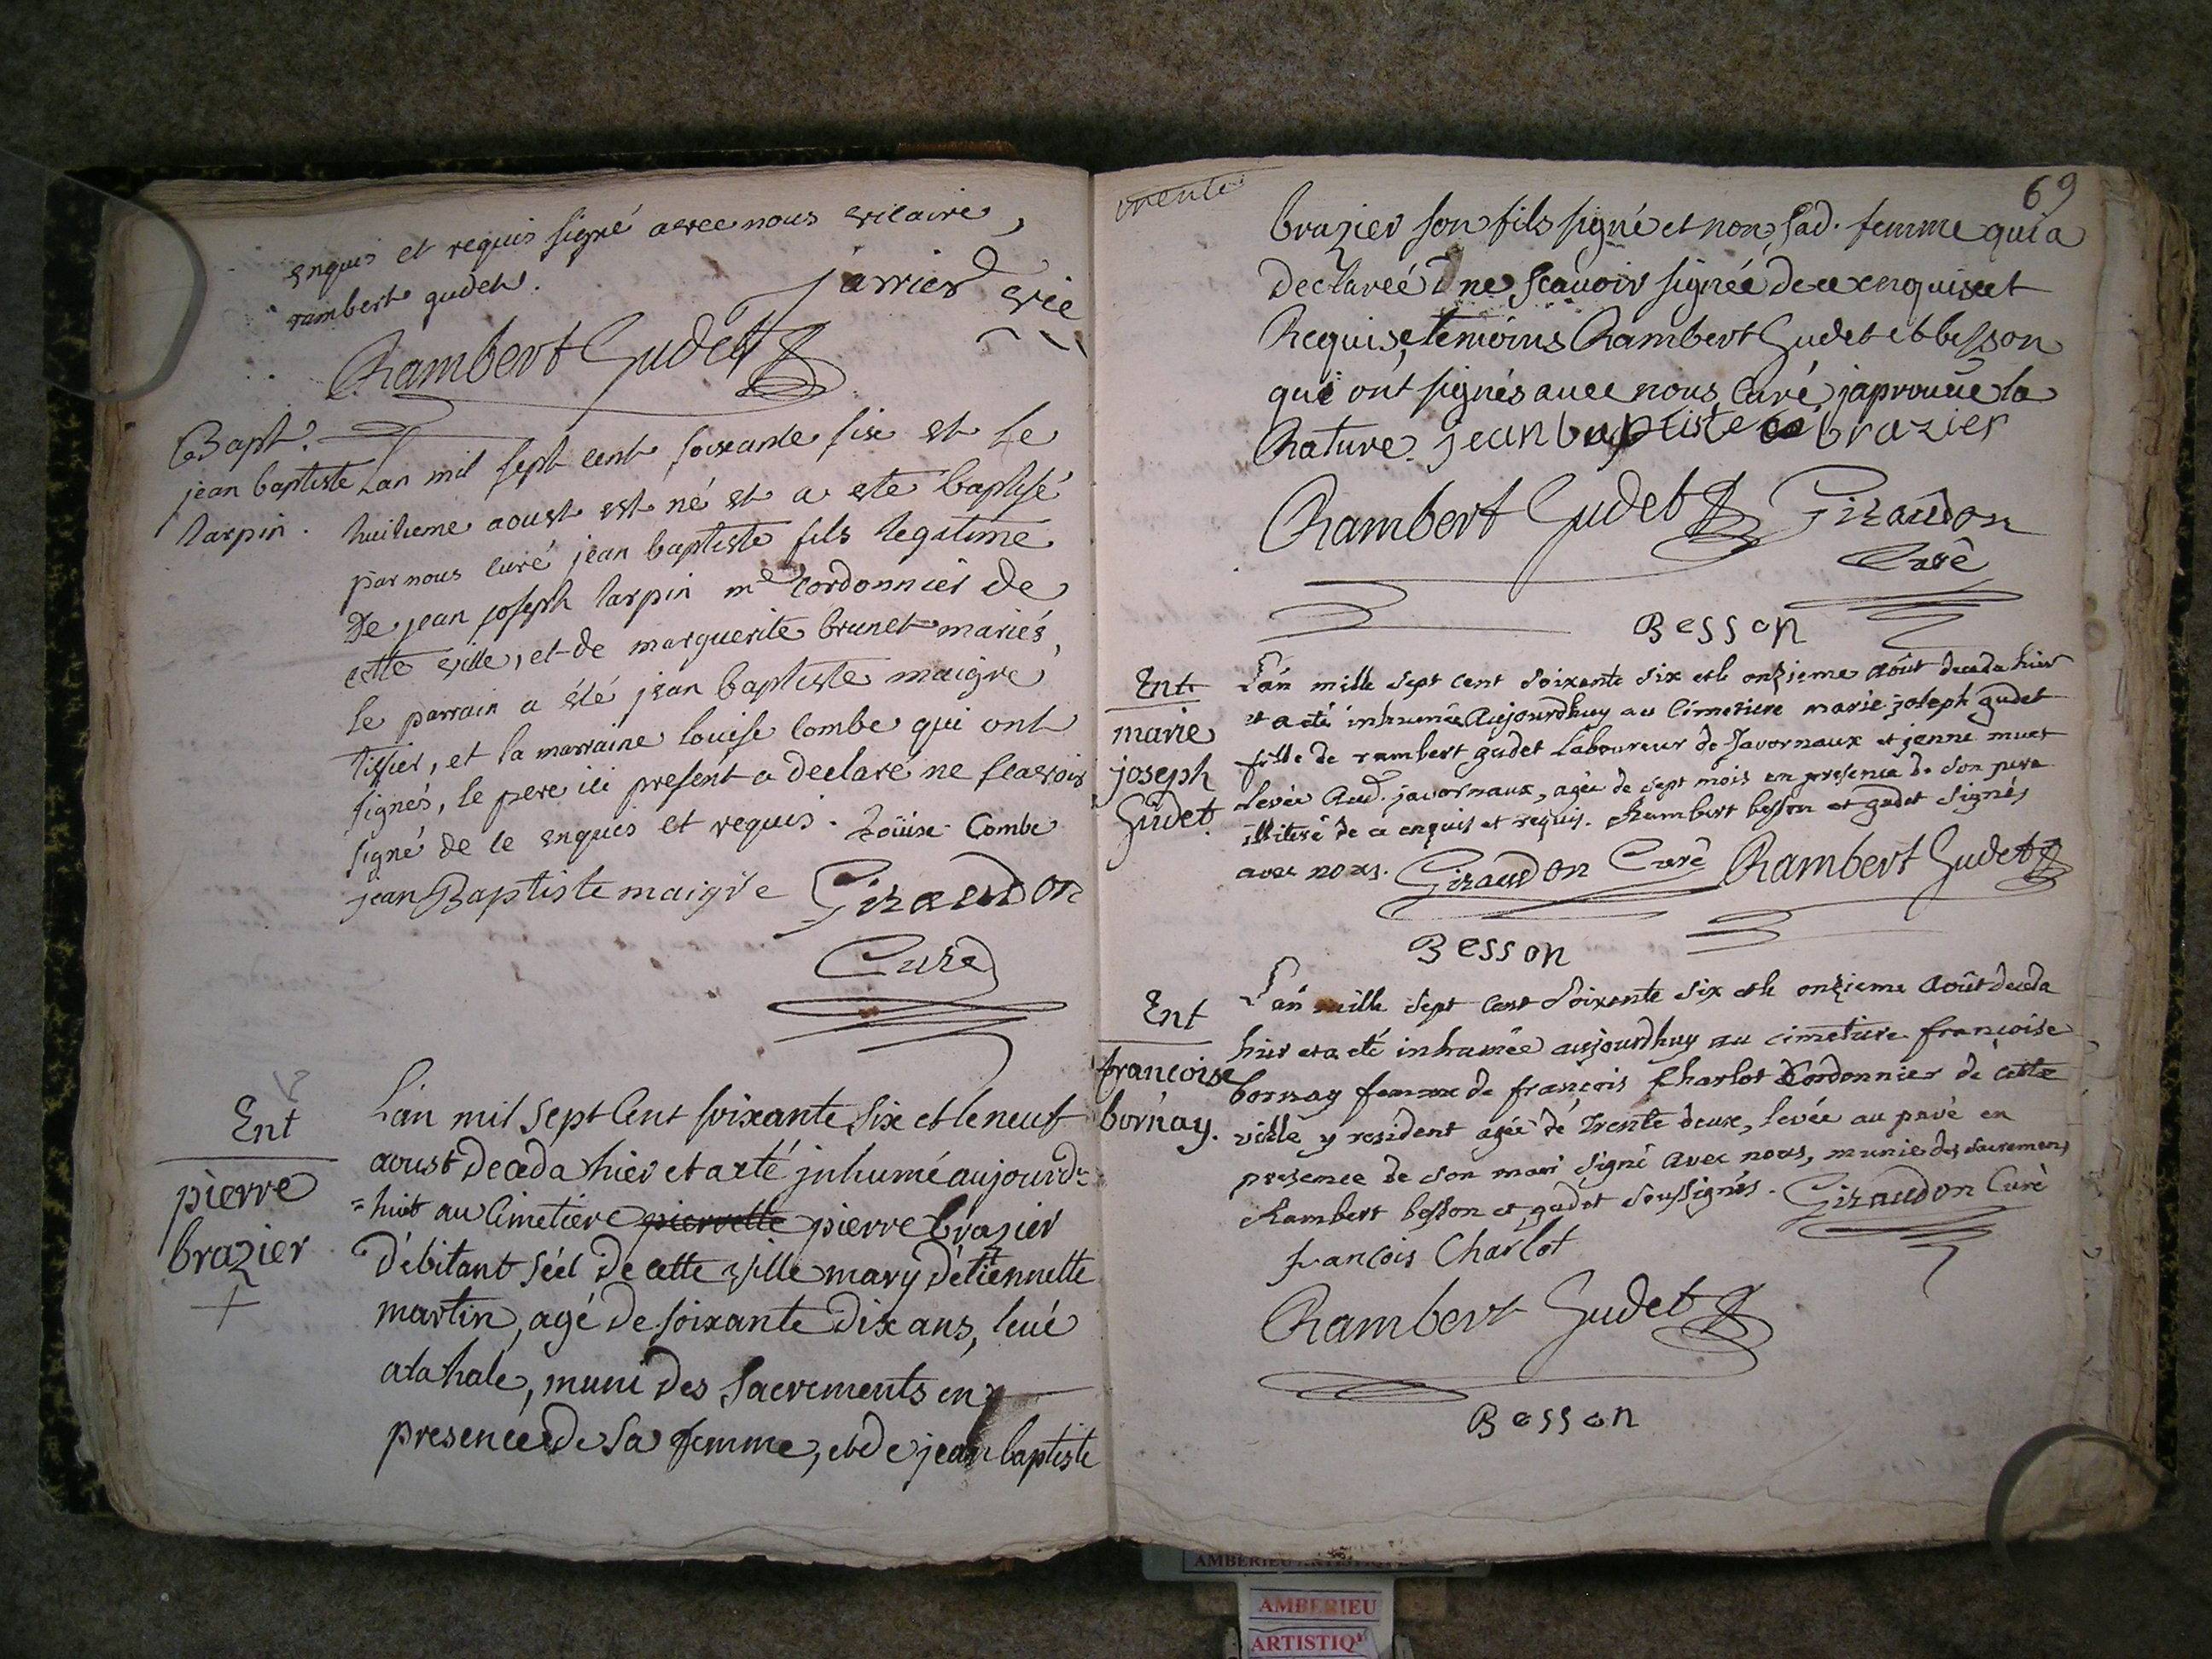 enquis et requis signé avec nous vicaire,
rambert gudet.
jarrier vic
Rambert Gudet
Bapt.
jean baptiste
tarpin.
Lan mil sept cent soixante six et le
huitieme aoust est né et a esté baptisé
par nous curé jean baptiste fils legitime
De jean joseph tarpin me Cordonnier de
cette ville, et de marguerite brunet mariés,
le parrain a été jean baptiste maigre
tissier, et la marraine louise combe qui ont
signés, le pere ici present a declaré ne scavoir
signé de ce enquis et requis. Loüise Combe
jean Baptiste maigre Giraudon
Curé
Ent
pierre
brazier
Lan mil sept Cent soixante six et le neuf
aoust deceda hier et a eté jnhumé aujourd=
=huit au Cimetiere pierrette pierre brazier
débitant séel de cette ville mary d'étiennette
martin, agé de soixante dix ans, levé
a la hale, muni des Sacrements en
presence de Sa femme, et de jean baptiste
69
trente
brazier son fils signé et non, sad. femme qui a
declareé ne scauoir signée de ce enquise et
Requise, temoins Rambert Gudet et besson
qui ont signés avec nous, Curé, japrouue la
Rature. jean baptiste brazier
Rambert Gudet Giraudon
Curé
Besson
Ent.
marie
joseph
Gudet.
L'an mille sept cent soixante six et le onzieme août deceda hier
et a eté inhumée aujourdhuy au Cimetiere marie joseph gudet
fille de rambert gudet Laboureur de Javornaux et jenne muet
levée aud. javornaux, agée de sept mois en presence de son pere
illiteré de ce enquis et requis. Rambert besson et gudet signés
avec nous. Giraudon Curé Rambert Gudet
Besson
Ent
francoise
bornay.
L'an mille sept cent soixante six et le onzieme août deceda
hier et a eté inhumée aujourdhuy au cimetiere françoise
bornay femme de françois Charlot Cordonnier de cette
ville y resident agée de trente deux, levée au pavé en
presence de son mari signé avec nous, munie des sacremens
Rambert besson et gudet soussignés. Giraudon Curé
francois Charlot
Rambert Gudet
Besson
AMBERIEU ARTISTIQ
AMBERIEU
ARTISTIQ'